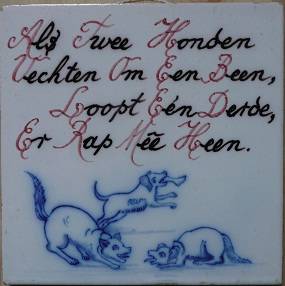 Als Twee Honden
Vechten Om Een Been,
Loopt Eén Derde,
Er Rap Meê Heen.